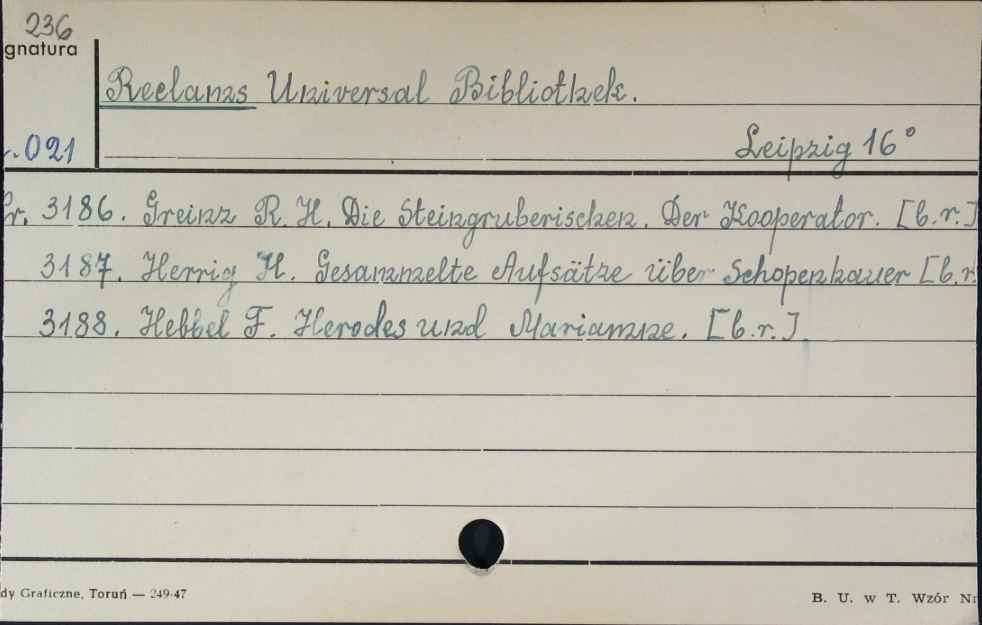 236
gnatura
Reclams Universal Bibliothek.
.021
Leipzig 16°
r. 3186. Greinz R. H. Die Steingruberischen. Der Kooperator. [b.r.]
3187. Herrig H. Gesammelte Aufsätze über Schopenhauer [b.r.
3188. Hebbel F. Herodes und Mariamne. [b.r.].
dy Graficzne, Toruń — 249-47
B. U. w T. Wzór Nr